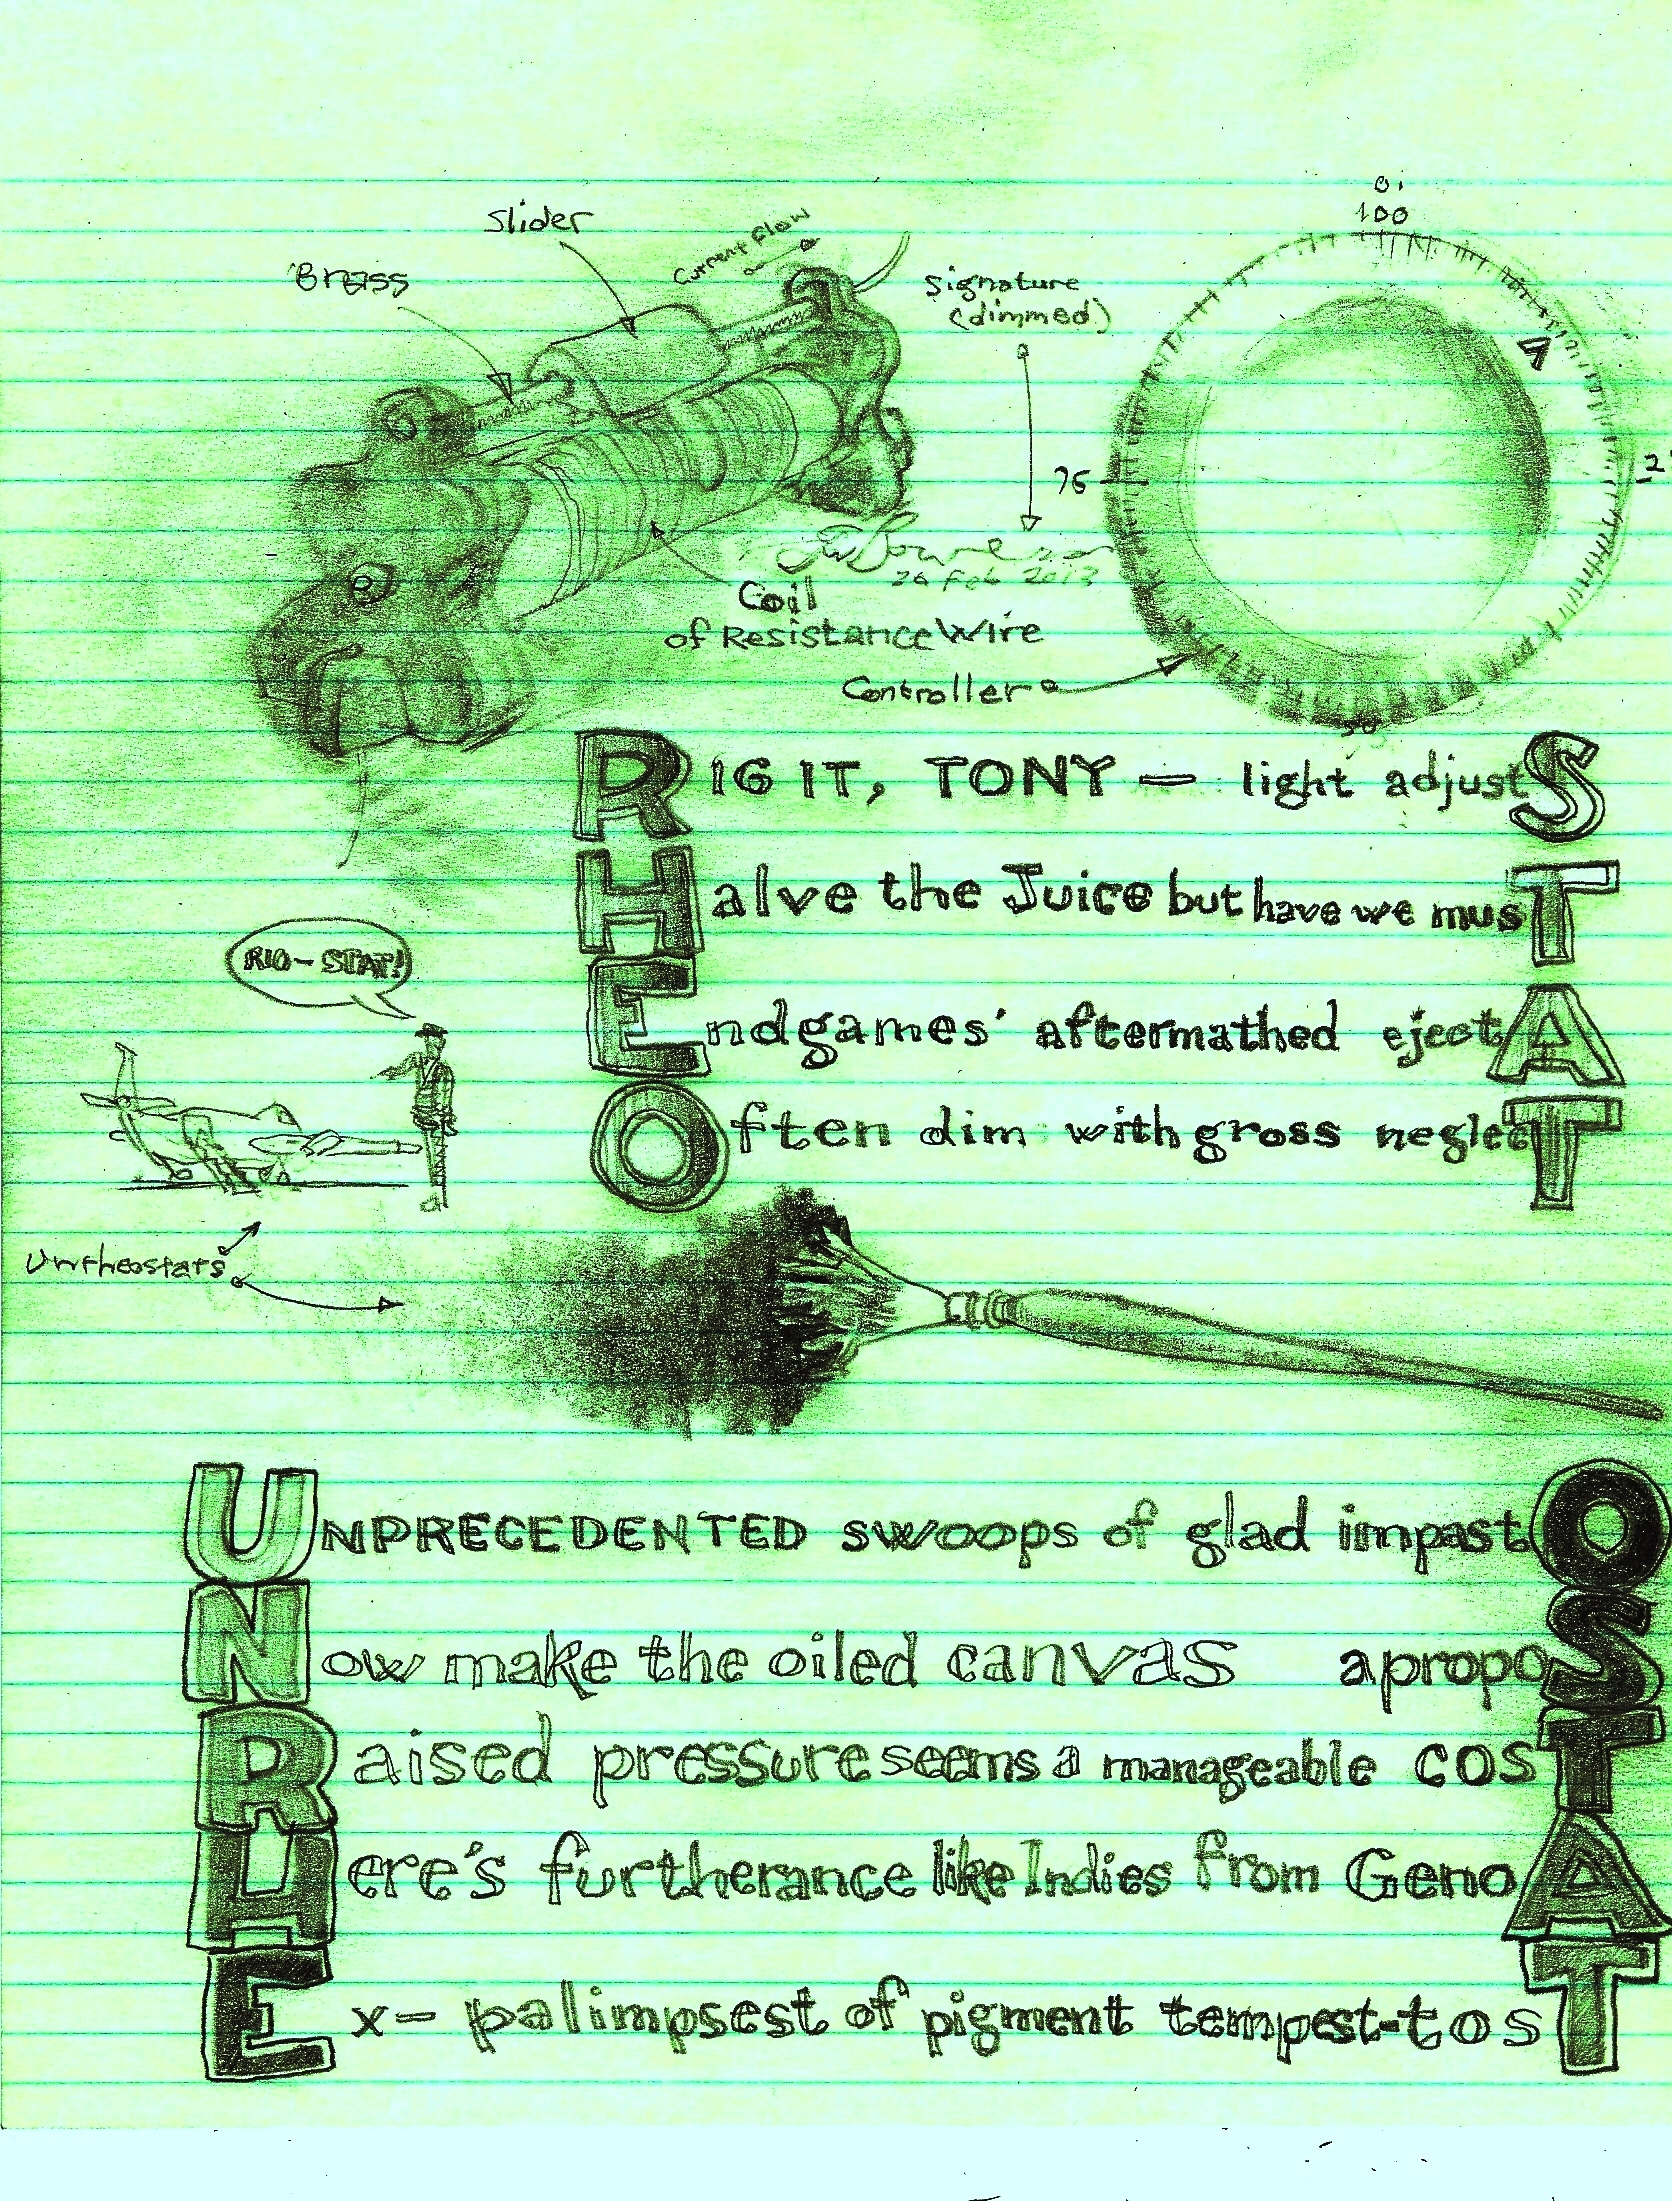 0
100
Slider
Current Flow
Brass
Signature
(dimmed)
75
26 Feb 2013
Coil
of Resistance Wire
Controller
50
RIG IT, TONY — light adjustS
Halve the Juice but have we musT
Endgames' aftermathed ejectA
Often dim with gross neglecT
RIO-STAT!
Unrheostats
UNPRECEDENTED swoops of glad impastO
Now make the oiled canvas apropoS
Raised pressure seems a manageable cosT
Here's furtherance like Indies from GenoA
Ex-palimpsest of pigment tempest-tosT